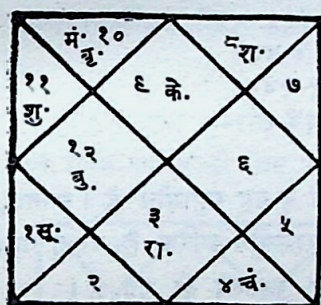 मं. १०
वृ.
८
श.
९ के.
११
शु.
७
१२
बु.
६
१सू.
३
रा.
५
२
४ चं.